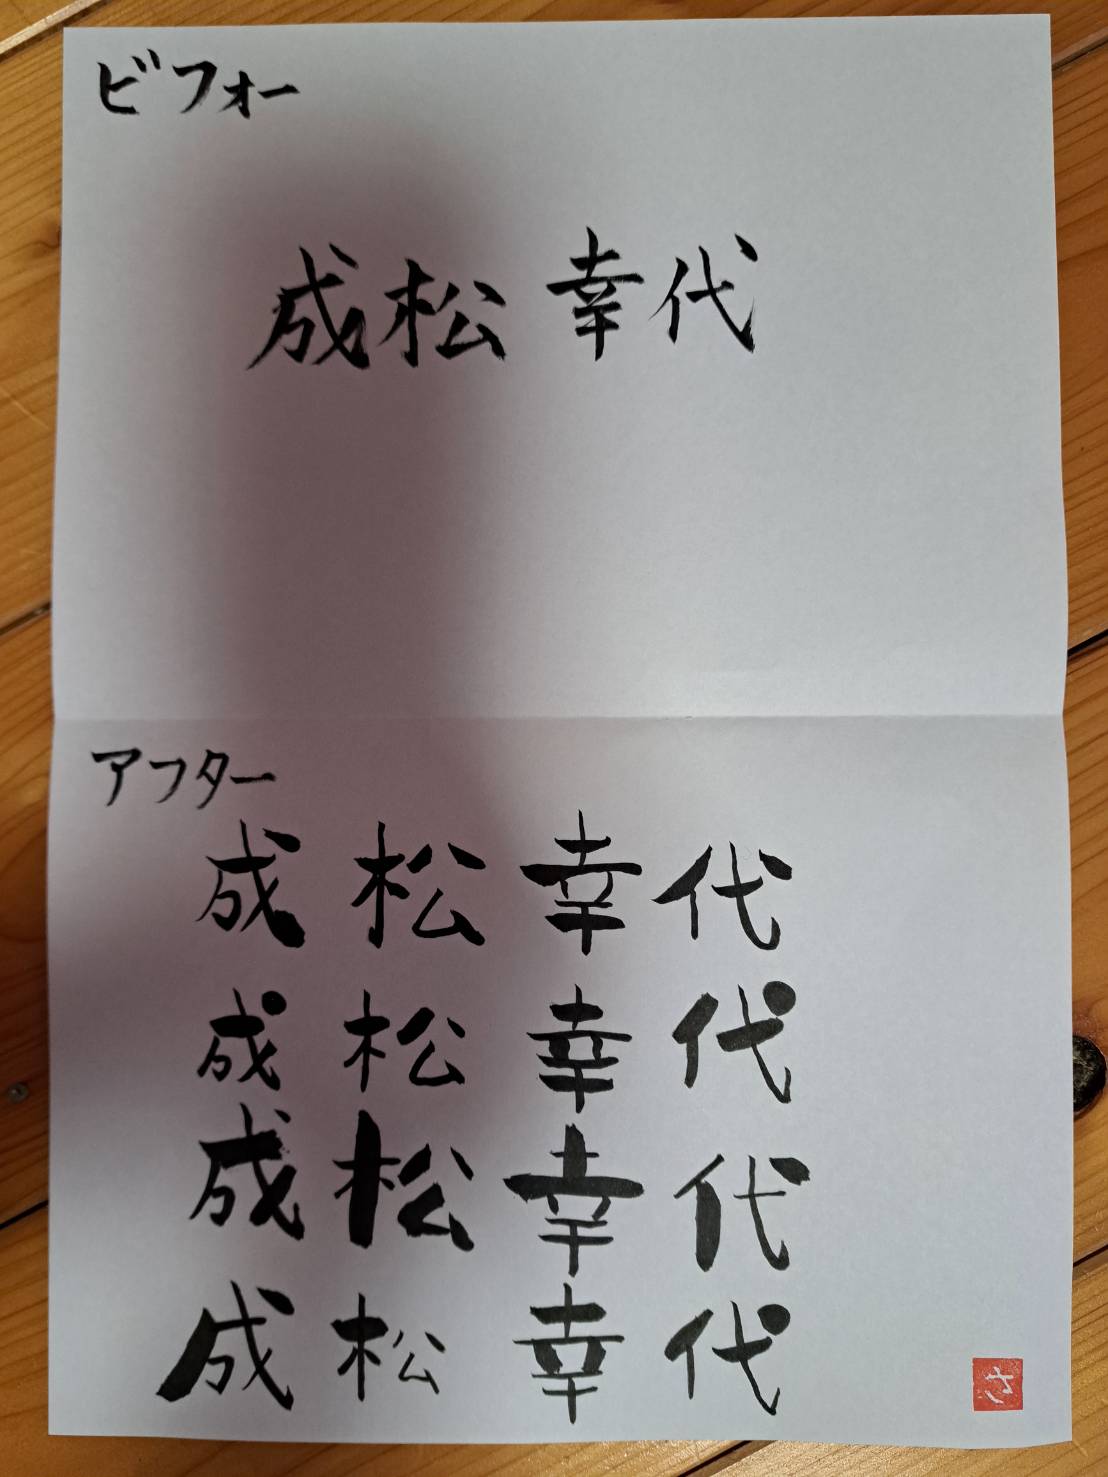 ビフォー
成松 幸代
アフター
成松幸代
成松幸代
成松幸代
成松幸代
さ